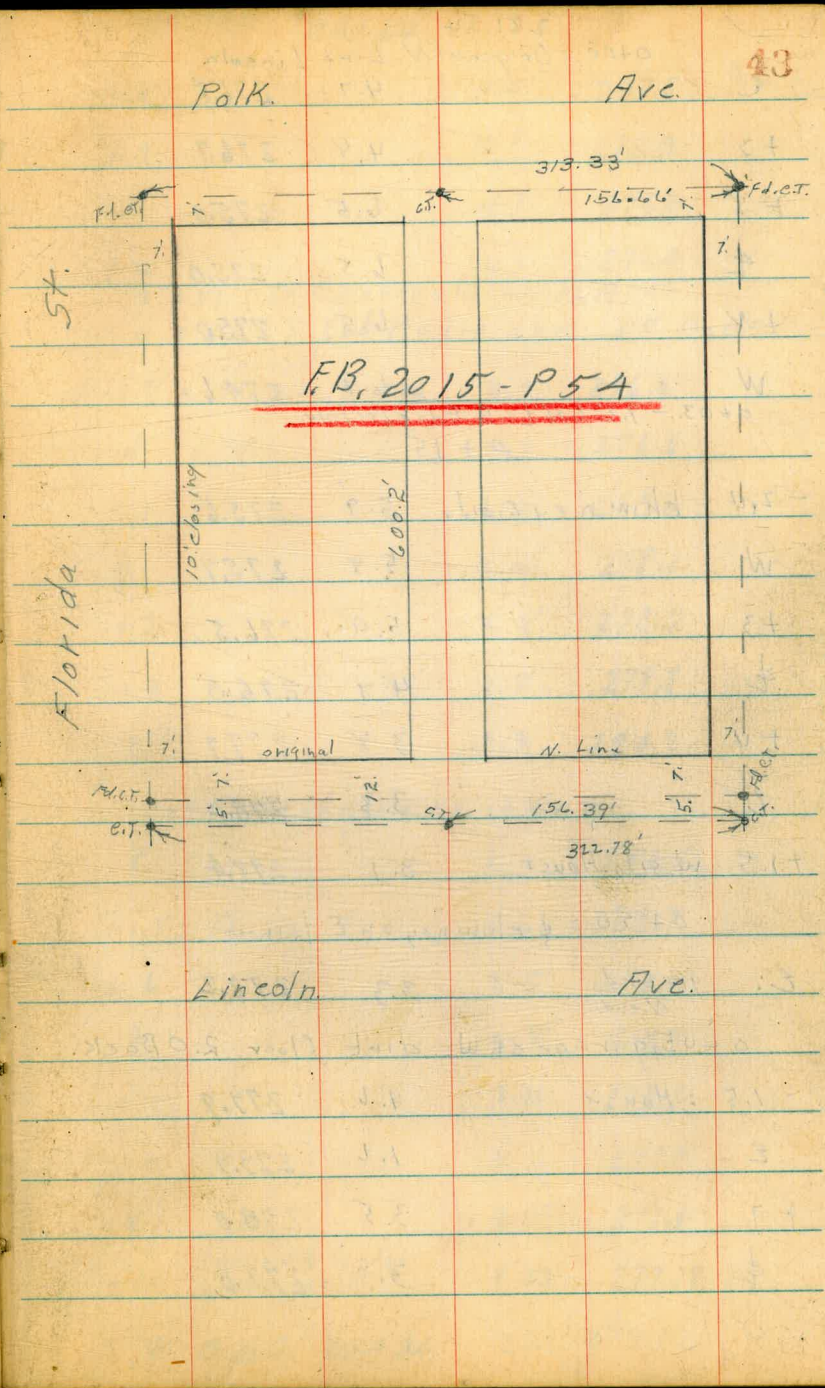 43
Polk. Ave.
313.33'
Fd.C.T. C.T. 156.66' Fd.C.T.
7' 7'
7' 7'
St.
F.B. 2015 - P 54
10' closing 600.2'
Florida
7' original N. Line 7'
7' 7'
Fd.C.T. 12' Fd.C.T.
C.T. 5' C.T. 156.39' 5' C.T.
322.78'
Lincoln. Ave.